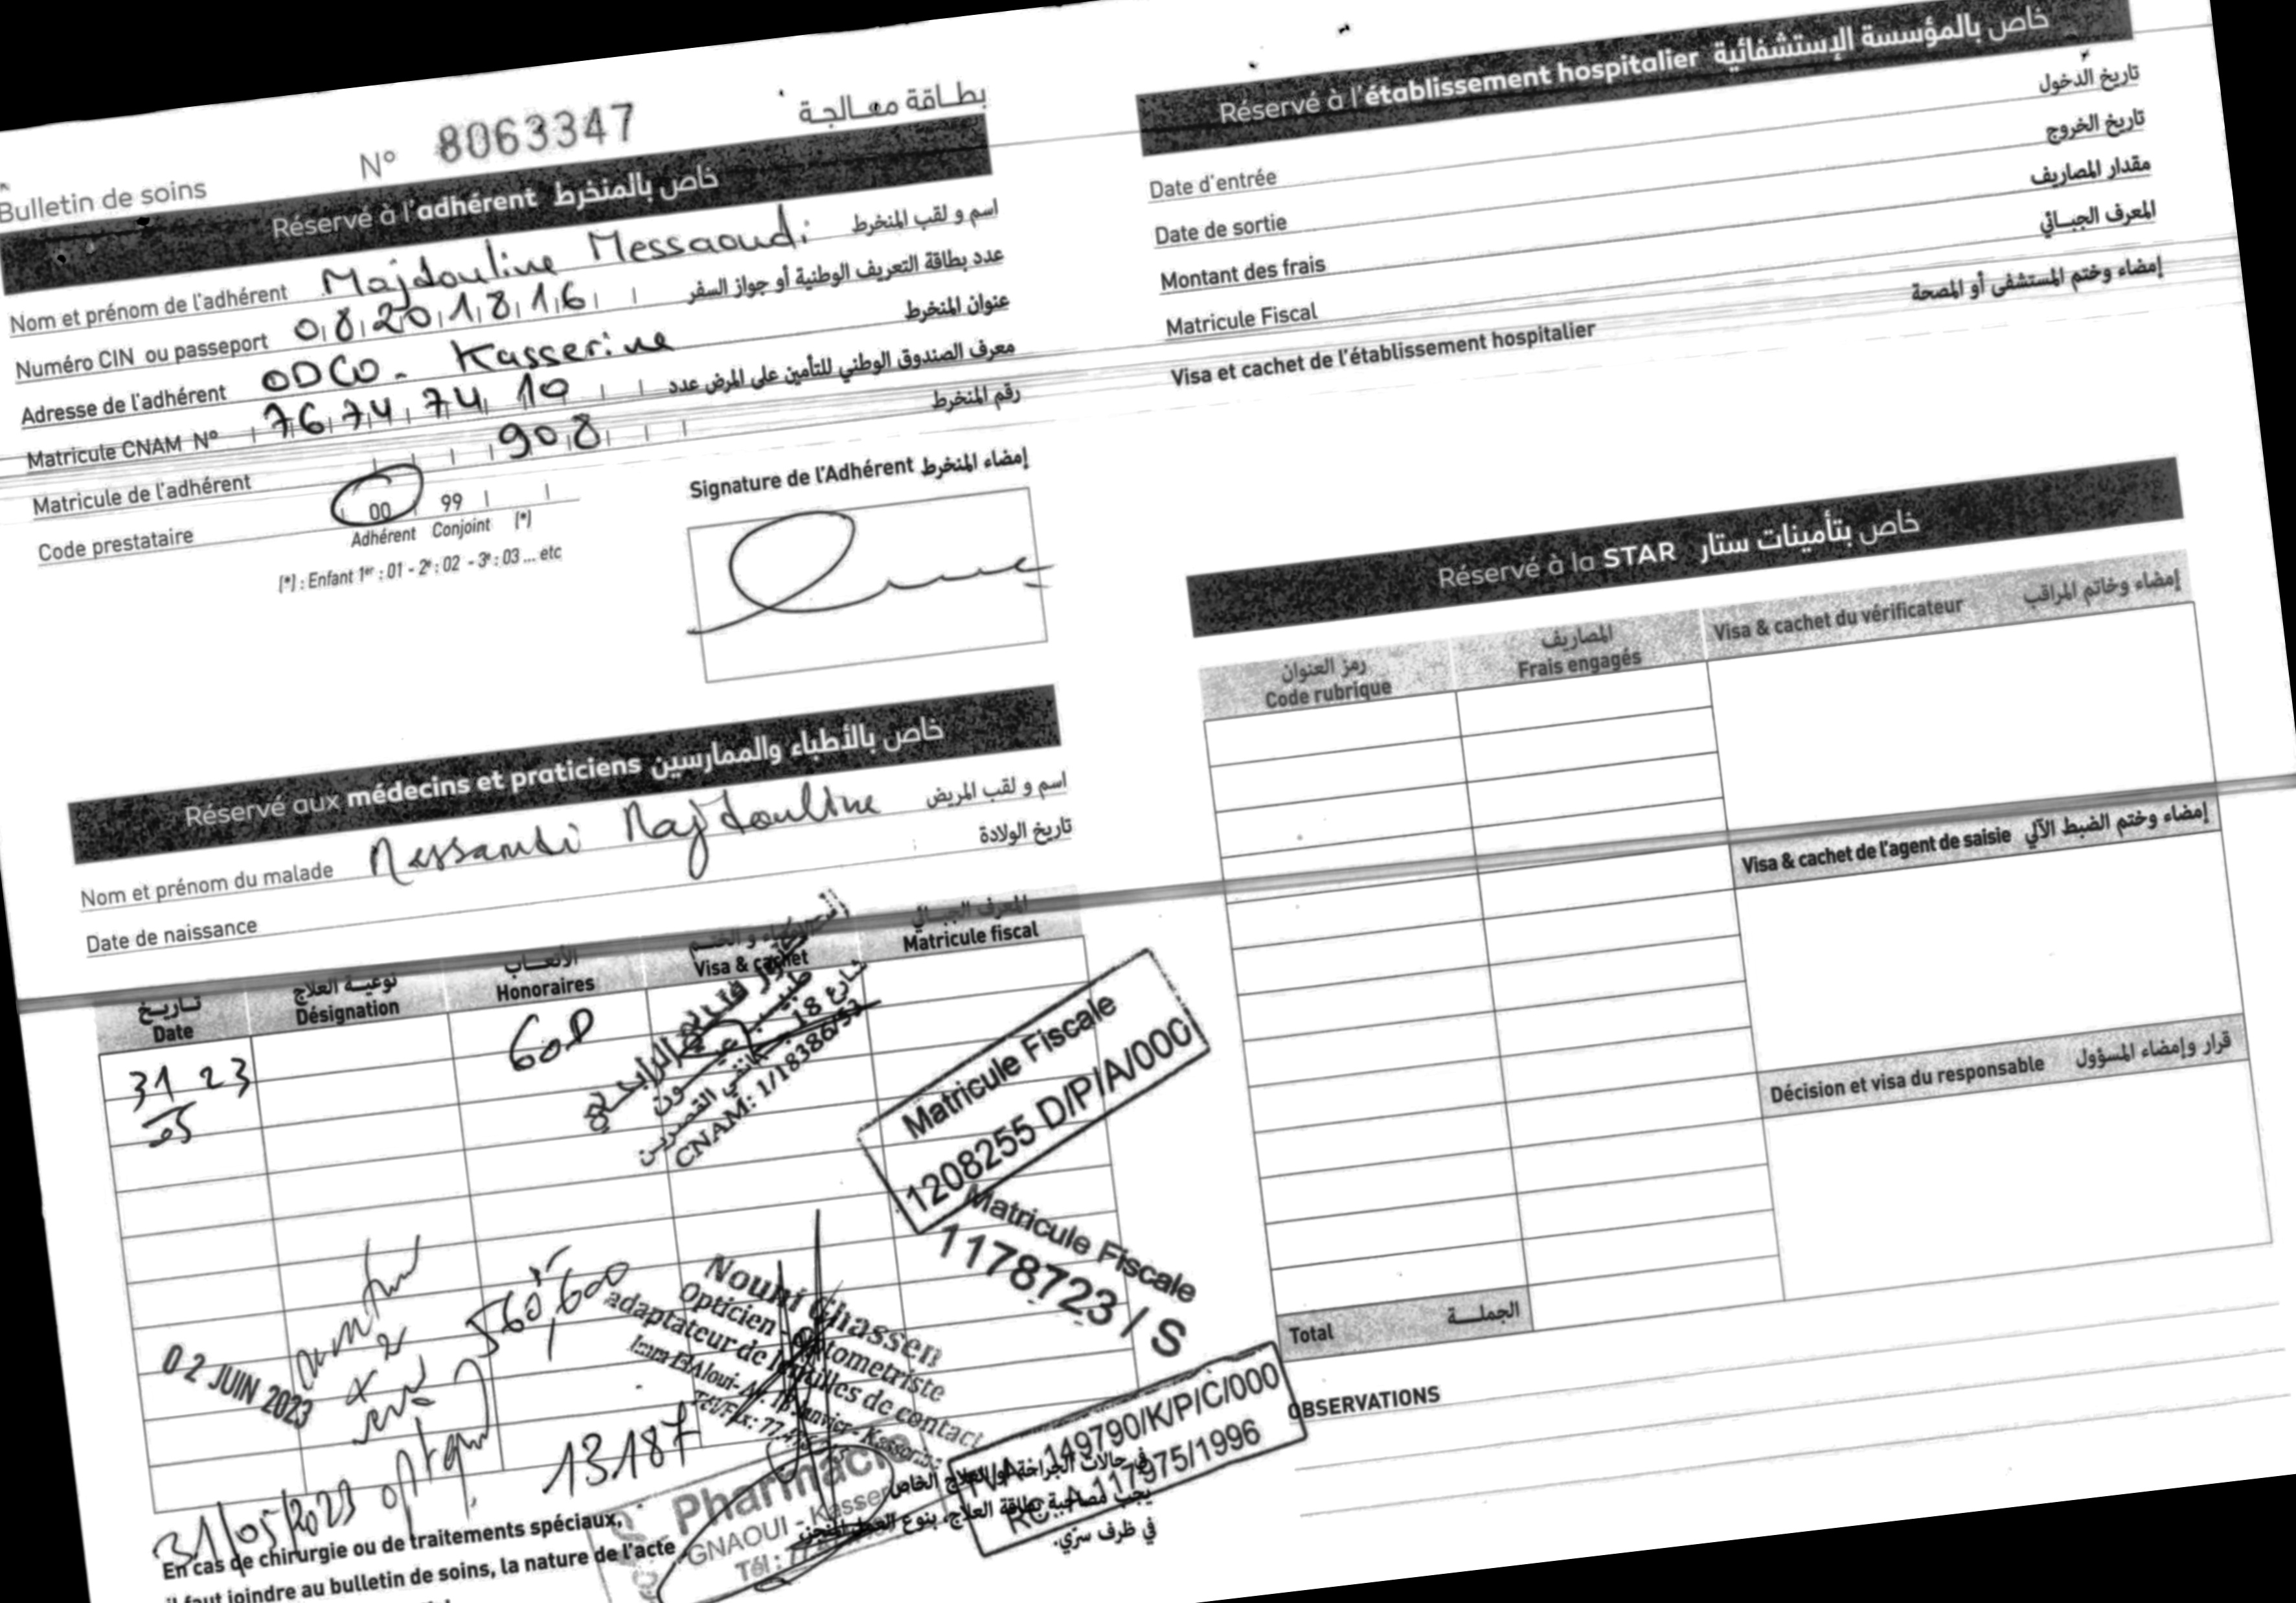 Bulletin de soins
N° 8063347
بطاقة معالجة
Réservé à l'adhérent خاص بالمنخرط
Nom et prénom de l'adhérent Majdouline Messaoudi اسم و لقب المنخرط
Numéro CIN ou passeport 08201816 عدد بطاقة التعريف الوطنية أو جواز السفر
Adresse de l'adhérent ODCO - Kasserine عنوان المنخرط
Matricule CNAM N° 76 74 74 10 معرف الصندوق الوطني للتأمين على المرض عدد
Matricule de l'adhérent 908 رقم المنخرط
Code prestataire 00 99
Adhérent Conjoint (*)
(*) : Enfant 1er : 01 - 2e : 02 - 3e : 03 ... etc
Signature de l'Adhérent إمضاء المنخرط
Réservé aux médecins et praticiens خاص بالأطباء والممارسين
Nom et prénom du malade Messaoudi Majdouline اسم و لقب المريض
Date de naissance تاريخ الولادة
تاريخ نوعية العلاج الأتعاب الإمضاء و الختم المعرف الجبائي
Date Désignation Honoraires Visa & cachet Matricule fiscal
31 23
05
60D
طبيب عيون
CNAM: 1/18386/53
Matricule Fiscale
1208255 D/P/A/000
Matricule Fiscale
1178723 / S
02 JUIN 2023
560,600
Nouhi Ghassen
Opticien - Optometriste
adaptateur de lentilles de contact
31/05/2023
13187
Pharmacie
GNAOUI - Kasser
Tél : 77
149790/K/P/C/000
RC: A 117975/1996
En cas de chirurgie ou de traitements spéciaux,
il faut joindre au bulletin de soins, la nature de l'acte
في حالات الجراحة أو العلاج الخاص
يجب مصاحبة بطاقة العلاج، بنوع العمل المنجز
في ظرف سري.
Réservé à l'établissement hospitalier خاص بالمؤسسة الإستشفائية
Date d'entrée تاريخ الدخول
Date de sortie تاريخ الخروج
Montant des frais مقدار المصاريف
Matricule Fiscal المعرف الجبائي
Visa et cachet de l'établissement hospitalier إمضاء وختم المستشفى أو المصحة
Réservé à la STAR خاص بتأمينات ستار
رمز العنوان المصاريف
Code rubrique Frais engagés
Visa & cachet du vérificateur إمضاء وخاتم المراقب
Visa & cachet de l'agent de saisie إمضاء وختم الضبط الآلي
Décision et visa du responsable قرار وإمضاء المسؤول
Total الجملة
OBSERVATIONS